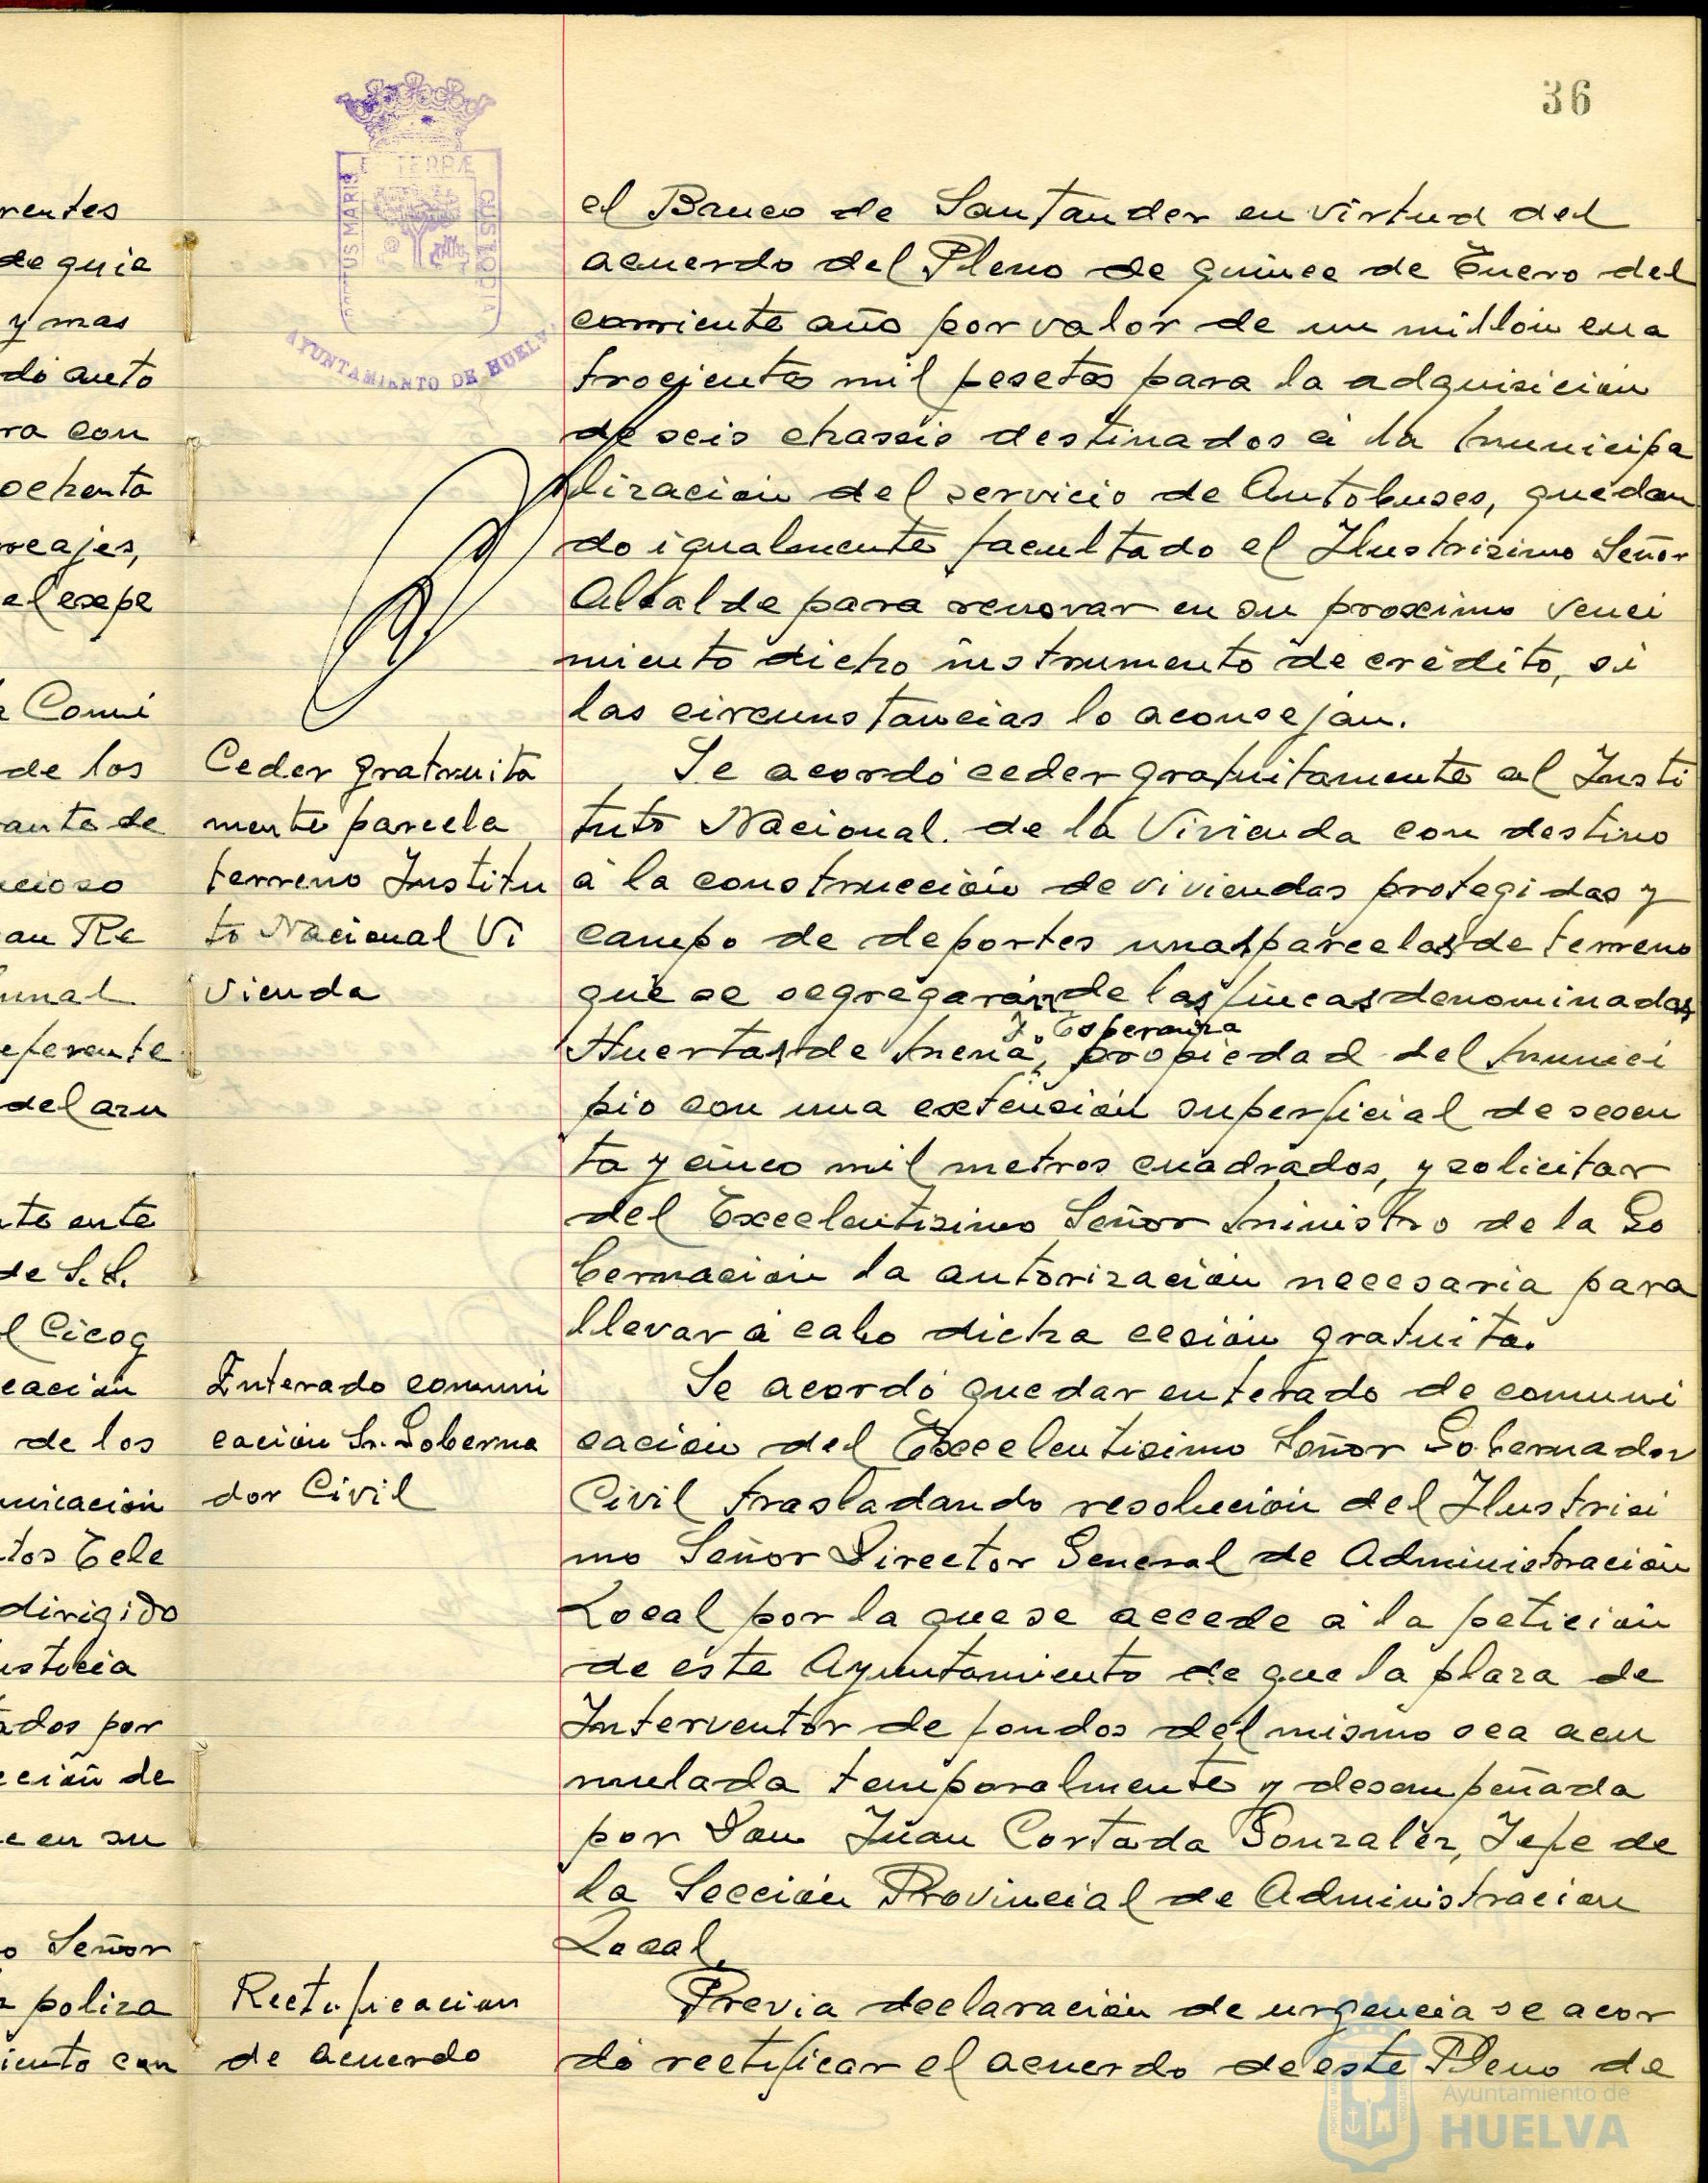 36
PORTUS MARIS
ET TERRÆ
CUSTODIA
AYUNTAMIENTO DE HUELVA
rentes
de quie
y mas
dó auto
ra con
ochenta
reajes,
el expe
Comi
de los
ante de
ncioso
an Re
unal
eferente
del azu
nto ente
de S.S.
l Cicog
cación
de los
unicación
tos Tele
dirigido
ados por
cción de
e en su
o Señor
poliza
iento con
el Banco de Santander en virtud del
acuerdo del Pleno de quince de Enero del
corriente año por valor de un millón cua
trocientas mil pesetas para la adquisición
de seis chassis destinados á la municipa
lización del servicio de Autobuses, quedan
do igualmente facultado el Ilustrisimo Señor
Alcalde para renovar en su proximo venci
miento dicho instrumento de crédito, si
las circunstancias lo aconsejan.
Ceder gratruita
mente parcela
terreno Institu
to Nacional Vi
vienda
Se acordó ceder gratuitamente al Insti
tuto Nacional. de la Vivienda con destino
á la construcción de viviendas protegidas y
campo de deportes unas parcelas de terreno
que se segregarán de las fincas denominadas
Huertas de Mena, y Esperanza propiedad del Munici
pio con una extensión superficial de sesen
ta y cinco mil metros cuadrados, y solicitar
del Excelentisimo Señor Ministro de la Go
bernación la autorización necesaria para
llevar á cabo dicha cesión gratuita.
Enterado comuni
cación Sr. Goberna
dor Civil
Se acordó quedar enterado de comuni
cación del Excelentisimo Señor Gobernador
Civil trasladando resolución del Ilustrisi
mo Señor Director General de Administración
Local por la que se accede á la petición
de este Ayuntamiento de que la plaza de
Interventor de fondos del mismo sea acu
mulada temporalmente y desempeñada
por Don Juan Cortada Gonzalez, Jefe de
la Sección Provincial de Administracion
Local.
Rectificacion
de acuerdo
Previa declaración de urgencia se acor
dó rectificar el acuerdo de este Pleno de
Ayuntamiento de
HUELVA